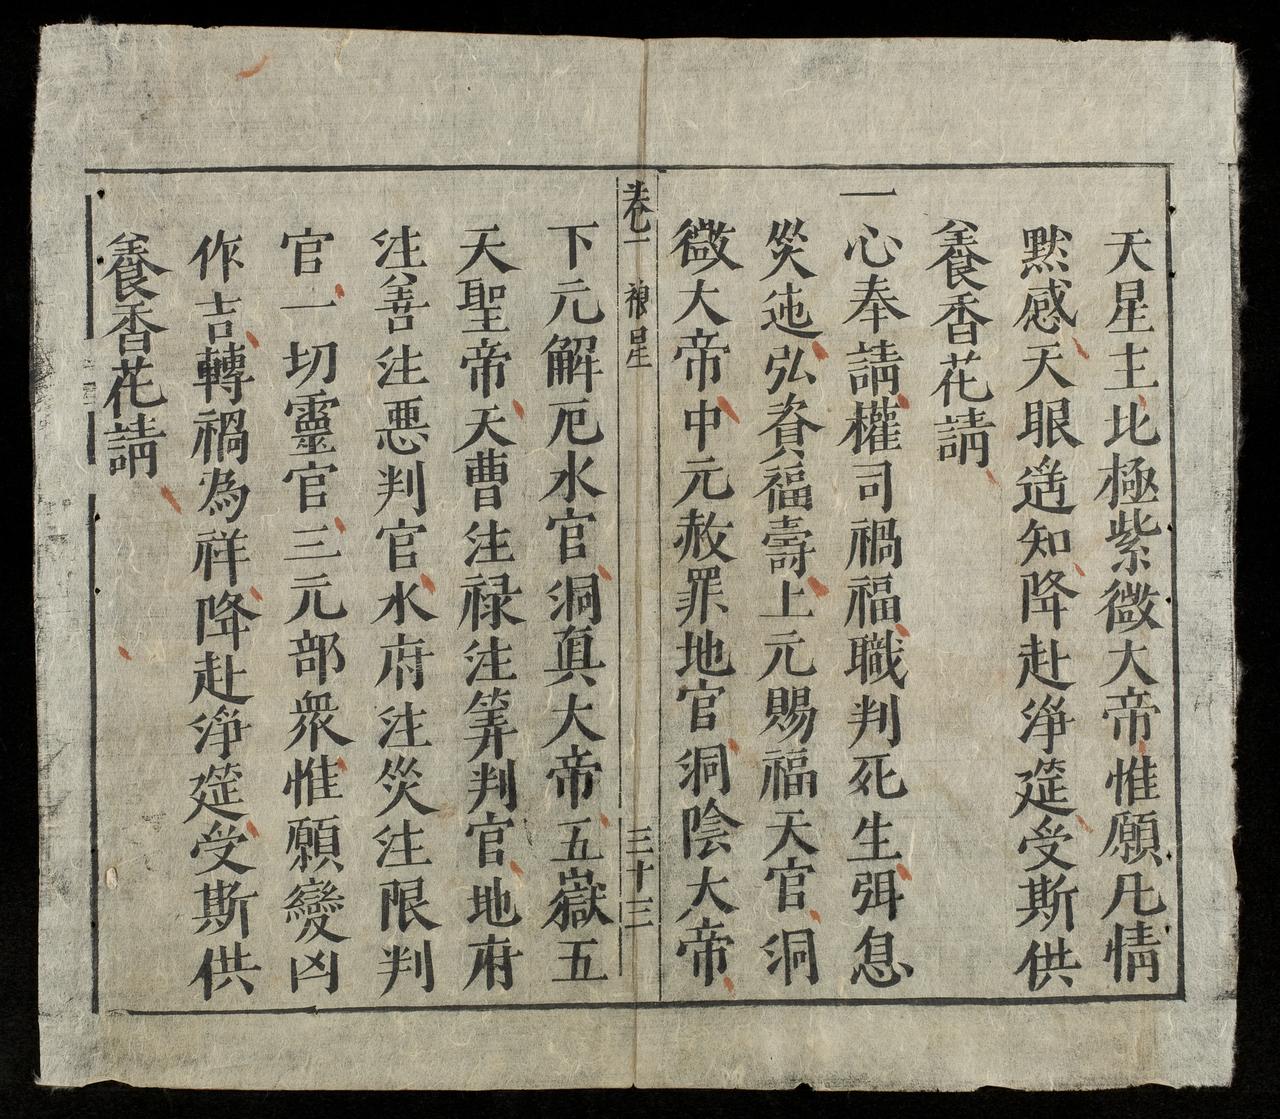 天星主北極紫微大帝惟願凡情
黙感天眼遥知降赴淨筵受斯供
養香花請
一心奉請權司禍福職判死生弭息
災迍弘資福壽上元賜福天官洞
微大帝中元赦罪地官洞陰大帝
卷一 禳星 三十三
下元解厄水官洞真大帝五嶽五
天聖帝天曹注禄注筭判官地府
注善注惡判官水府注災注限判
官一切靈官三元部衆惟願變凶
作吉轉禍為祥降赴淨筵受斯供
養香花請